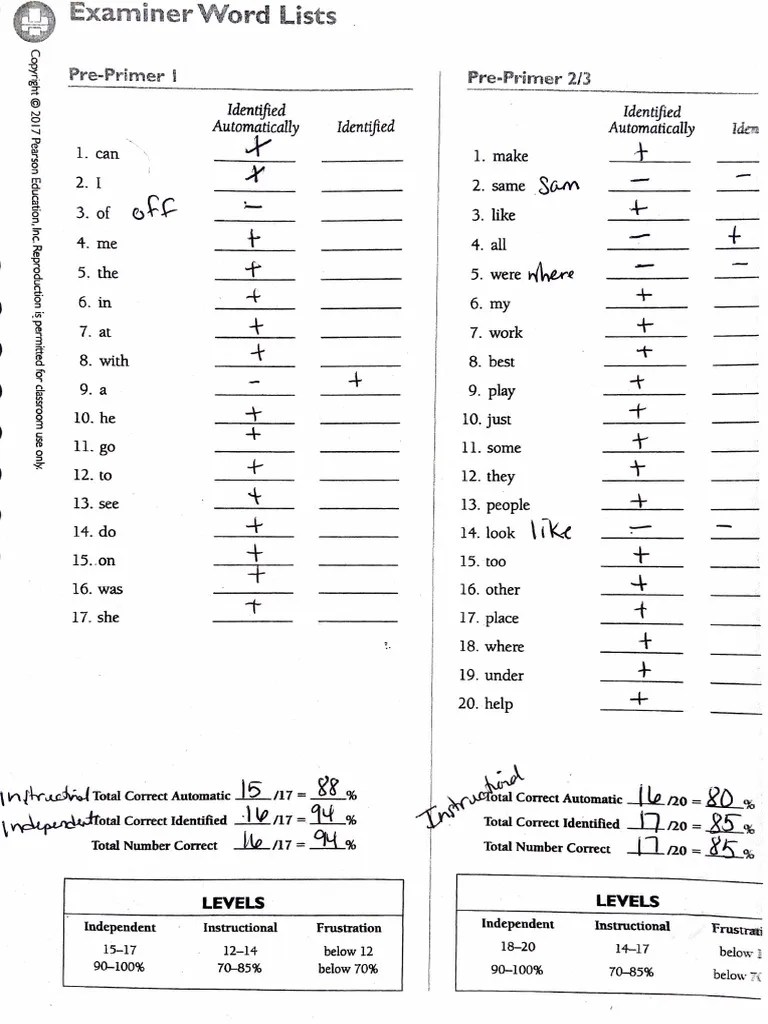 Examiner Word Lists
Copyright © 2017 Pearson Education, Inc. Reproduction is permitted for classroom use only.
Pre-Primer 1
Identified Automatically Identified
1. can +
2. I +
3. of off −
4. me +
5. the +
6. in +
7. at +
8. with +
9. a − +
10. he +
11. go +
12. to +
13. see +
14. do +
15. on +
16. was +
17. she +
Instructional Total Correct Automatic 15 /17 = 88 %
Independent Total Correct Identified 16 /17 = 94 %
Total Number Correct 16 /17 = 94 %
LEVELS
Independent Instructional Frustration
15–17 12–14 below 12
90–100% 70–85% below 70%
Pre-Primer 2/3
Identified Automatically Iden
1. make +
2. same Sam − −
3. like +
4. all − +
5. were where − −
6. my +
7. work +
8. best +
9. play +
10. just +
11. some +
12. they +
13. people +
14. look like − −
15. too +
16. other +
17. place +
18. where +
19. under +
20. help +
Instructional
Total Correct Automatic 16 /20 = 80 %
Total Correct Identified 17 /20 = 85 %
Total Number Correct 17 /20 = 85 %
LEVELS
Independent Instructional Frustrati
18–20 14–17 below 1
90–100% 70–85% below 70